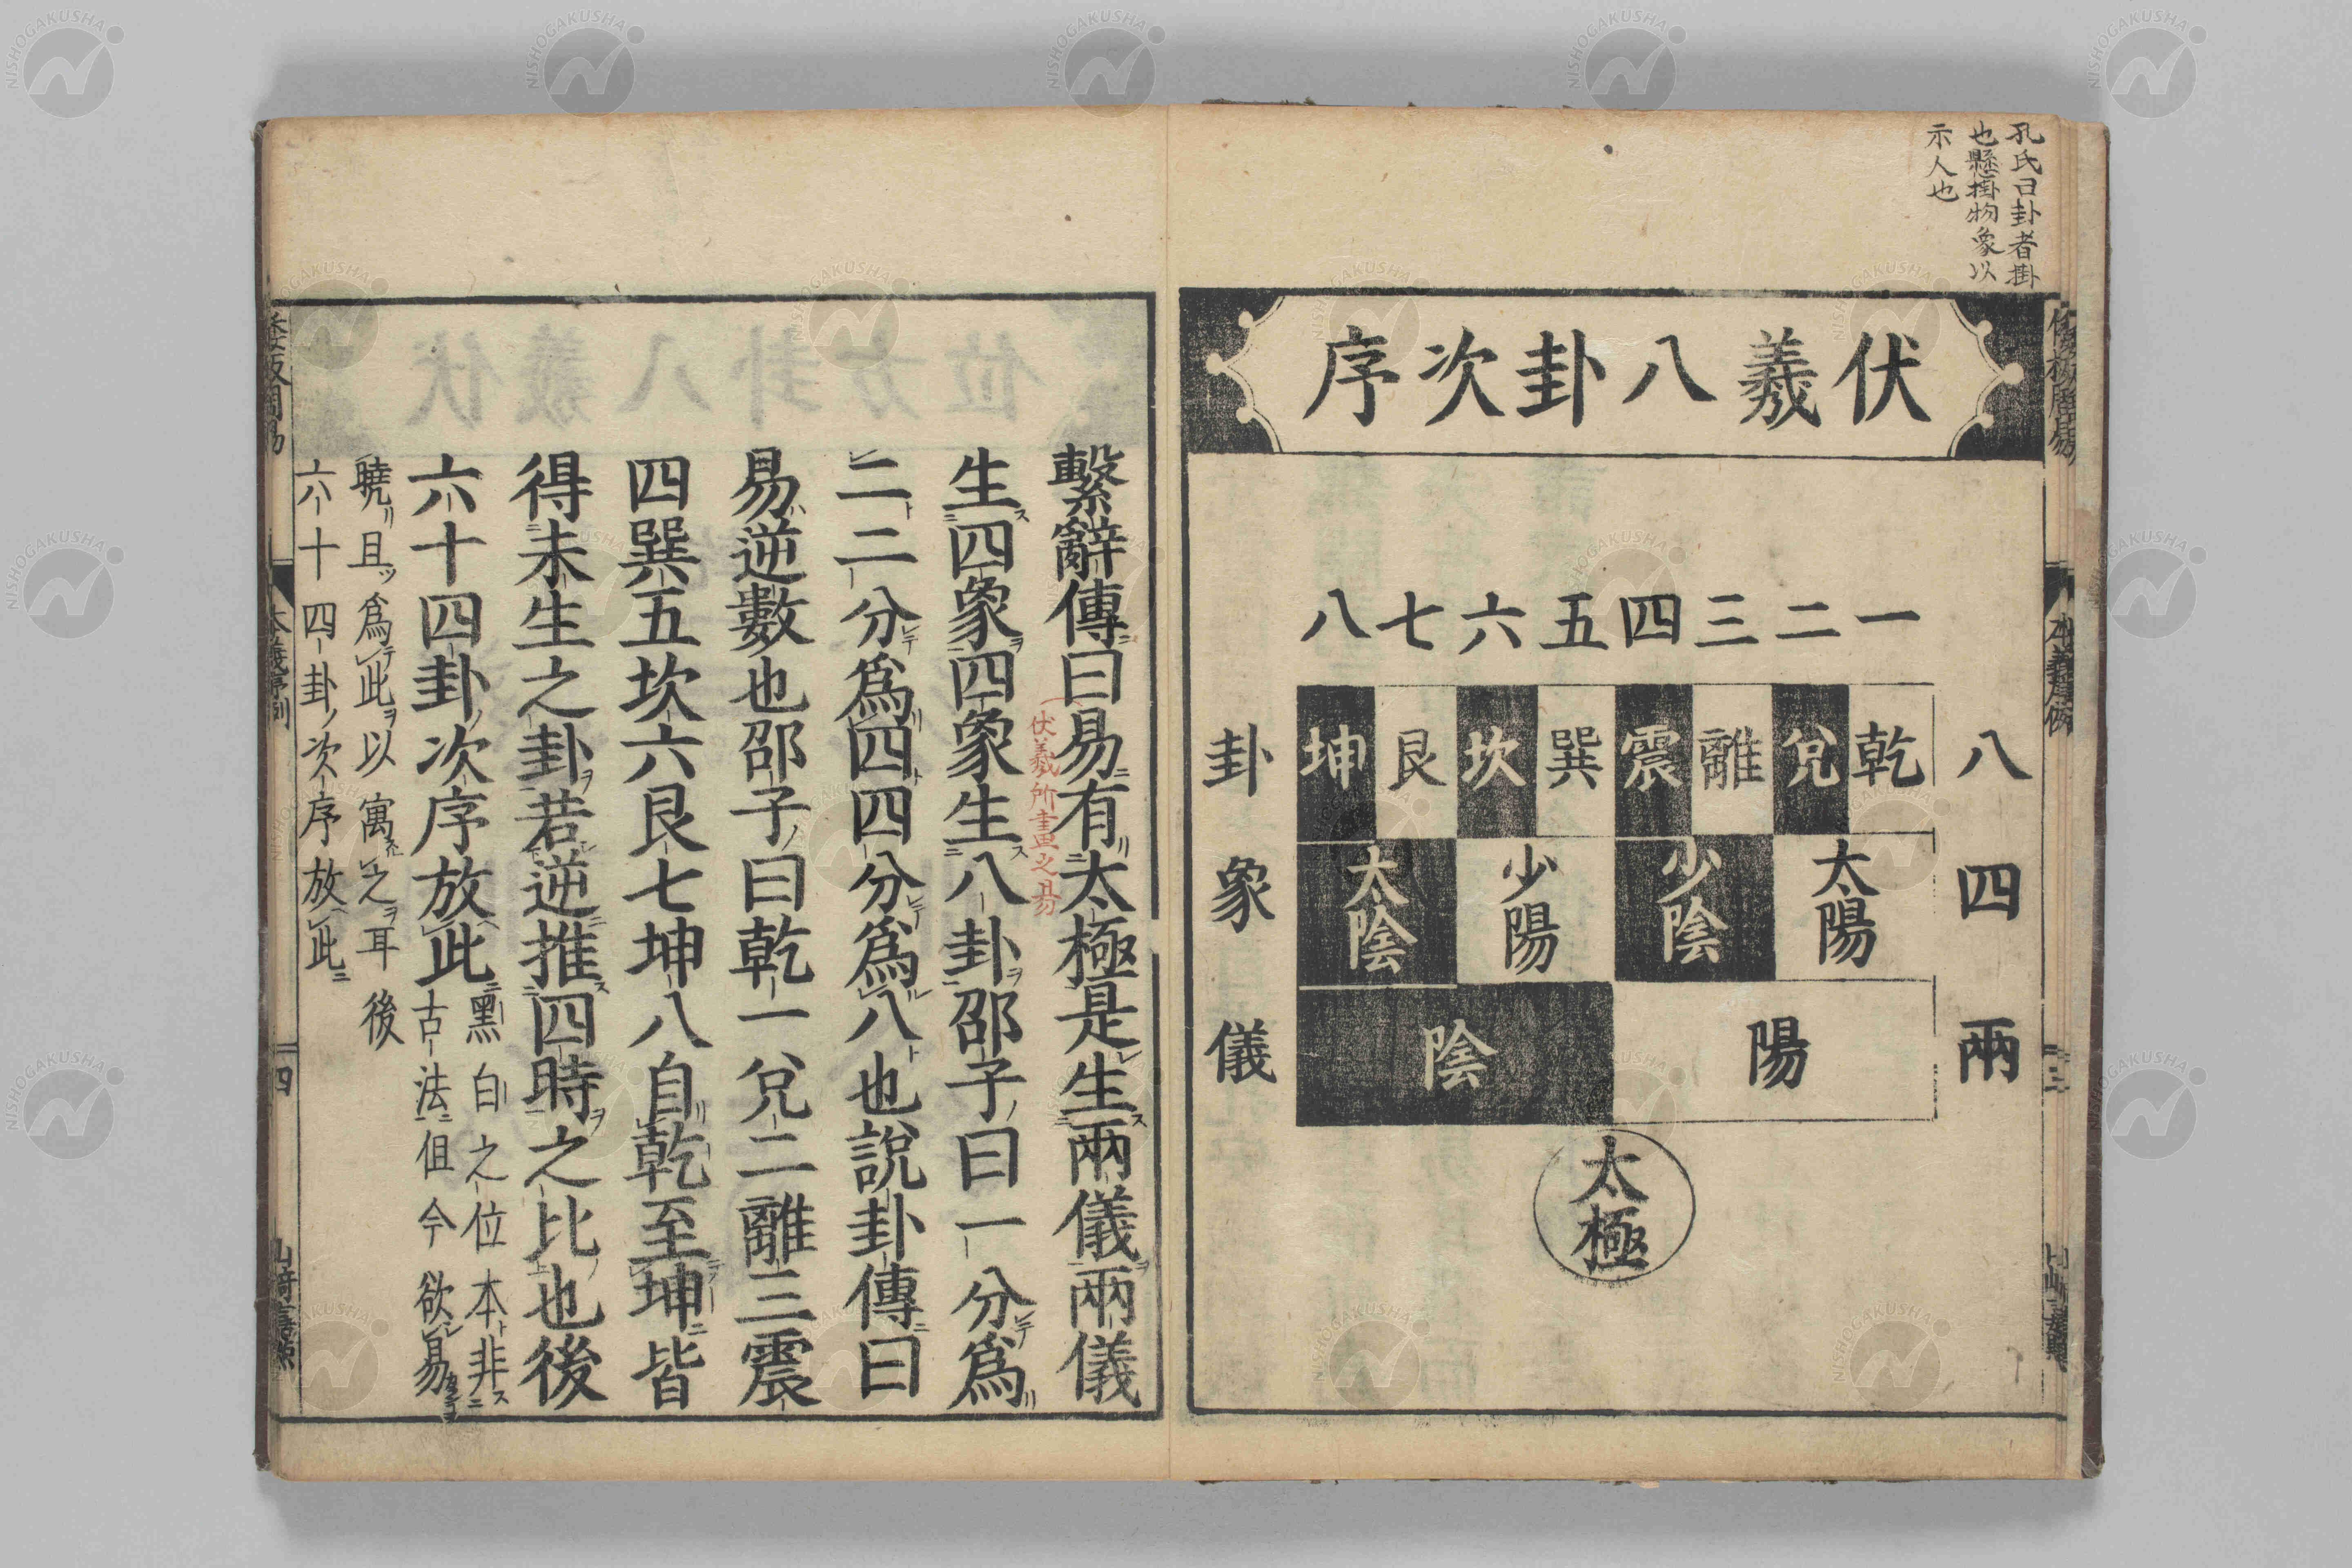 孔氏曰卦者掛
也懸掛物象以
示人也
伏羲八卦次序
一二三四五六七八
八卦
乾兌離震巽坎艮坤
四象
太陽 少陰 少陽 太陰
兩儀
陽 陰
太極
繫辭傳曰易有太極是生兩儀兩儀
伏羲所畫之易
生四象四象生八卦邵子曰一分爲
二二分爲四四分爲八也說卦傳曰
易逆數也邵子曰乾一兌二離三震
四巽五坎六艮七坤八自乾至坤皆
得未生之卦若逆推四時之比也後
六十四卦次序放此
黑白之位本非
古法但今欲易
曉且爲此以寓之耳後
六十四卦次序放此
四
NISHOGAKUSHA